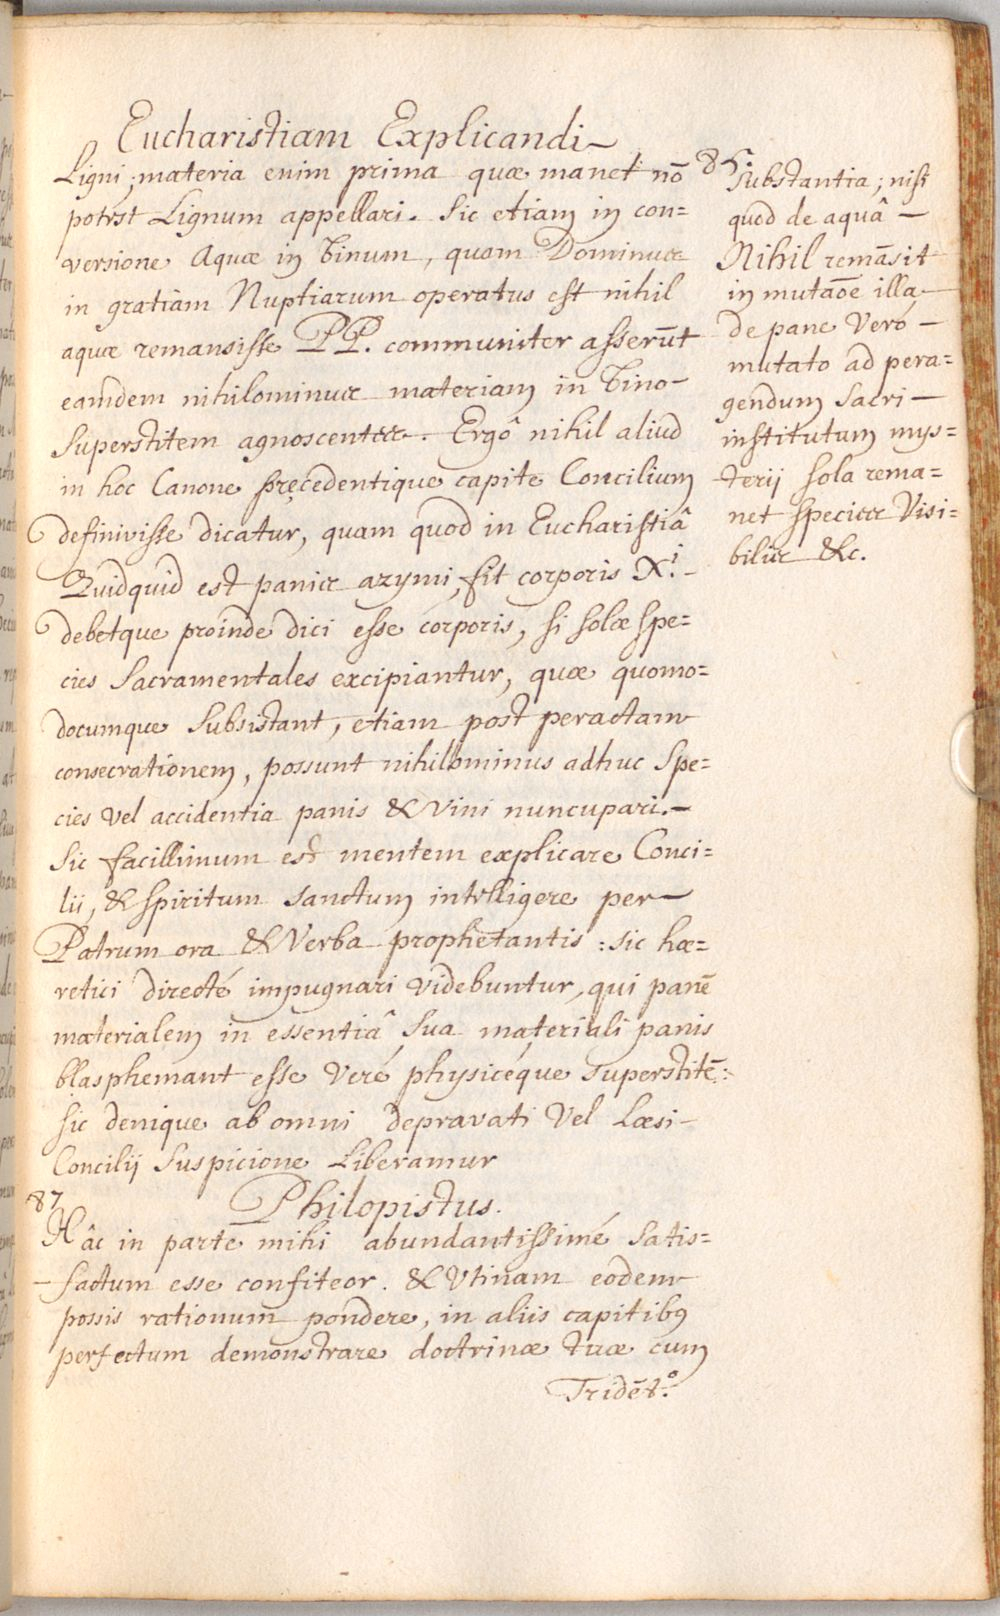 Eucharistiam Explicandi
85
Ligni; materia enim prima quæ manet nō
potest Lignum appellari. Sic etiam in con=
versione Aquæ in Vinum, quam Dominus
in gratiam Nuptiarum operatus est nihil
aquæ remansisse PP. communiter asserūt
eamdem nihilominus materiam in Vino
Superstitem agnoscentes. Ergô nihil aliud
in hoc Canone præcedentique capite Concilium
definivisse dicatur, quam quod in Eucharistiâ
Quidquid est panis azymi, fit corporis Xi.
debetque proinde dici esse corporis, si solæ spe=
cies Sacramentales excipiantur, quæ quomo=
documque Subsistant, etiam post peractam
consecrationem, possunt nihilominus adhuc Spe=
cies vel accidentia panis & vini nuncupari.
Sic facillimum est mentem explicare Conci=
lii, & spiritum sanctum intelligere per
Patrum ora & Verba prophetantis: sic hæ=
retici directé impugnari videbuntur, qui panē
materialem in essentiâ Sua materiali panis
blasphemant esse Veré physicéque superstitē:
sic denique ab omni depravati Vel Læsi
Concilij Suspicione Liberamur
Philopistus.
87
Hâc in parte mihi abundantissimé Satis=
factum esse confiteor. & Utinam eodem
possis rationum pondere, in aliis capitibꝰ
perfectum demonstrare doctrinæ tuæ cum
Tridēt.o
Substantia; nisi
quod de aquâ
Nihil remāsit
in mutaōe illa
de pane Veró
mutato ad pera=
gendum Sacri
institutum mys=
terij sola rema=
net species Visi=
bilis &c.